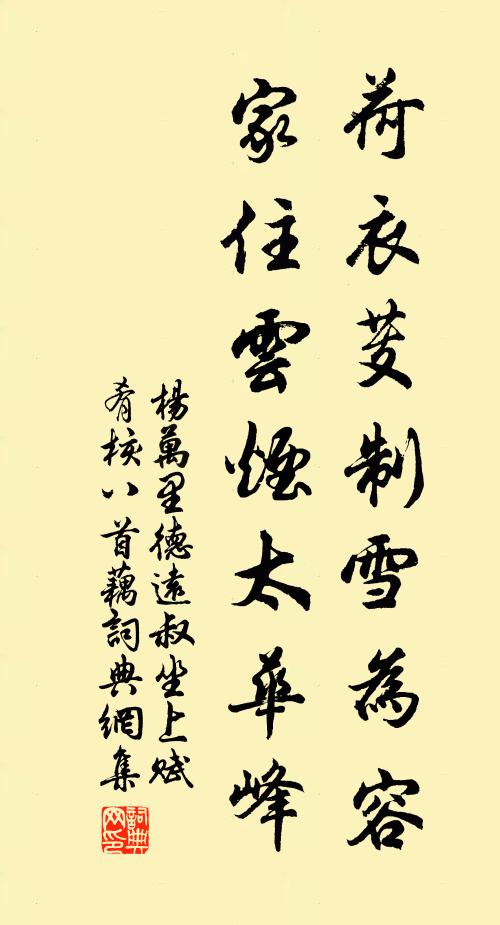 荷衣芰制雪為容
家住雲煙太華峰
楊萬里德遠叔坐上賦
肴核八首藕詞典網集
詞典
网印